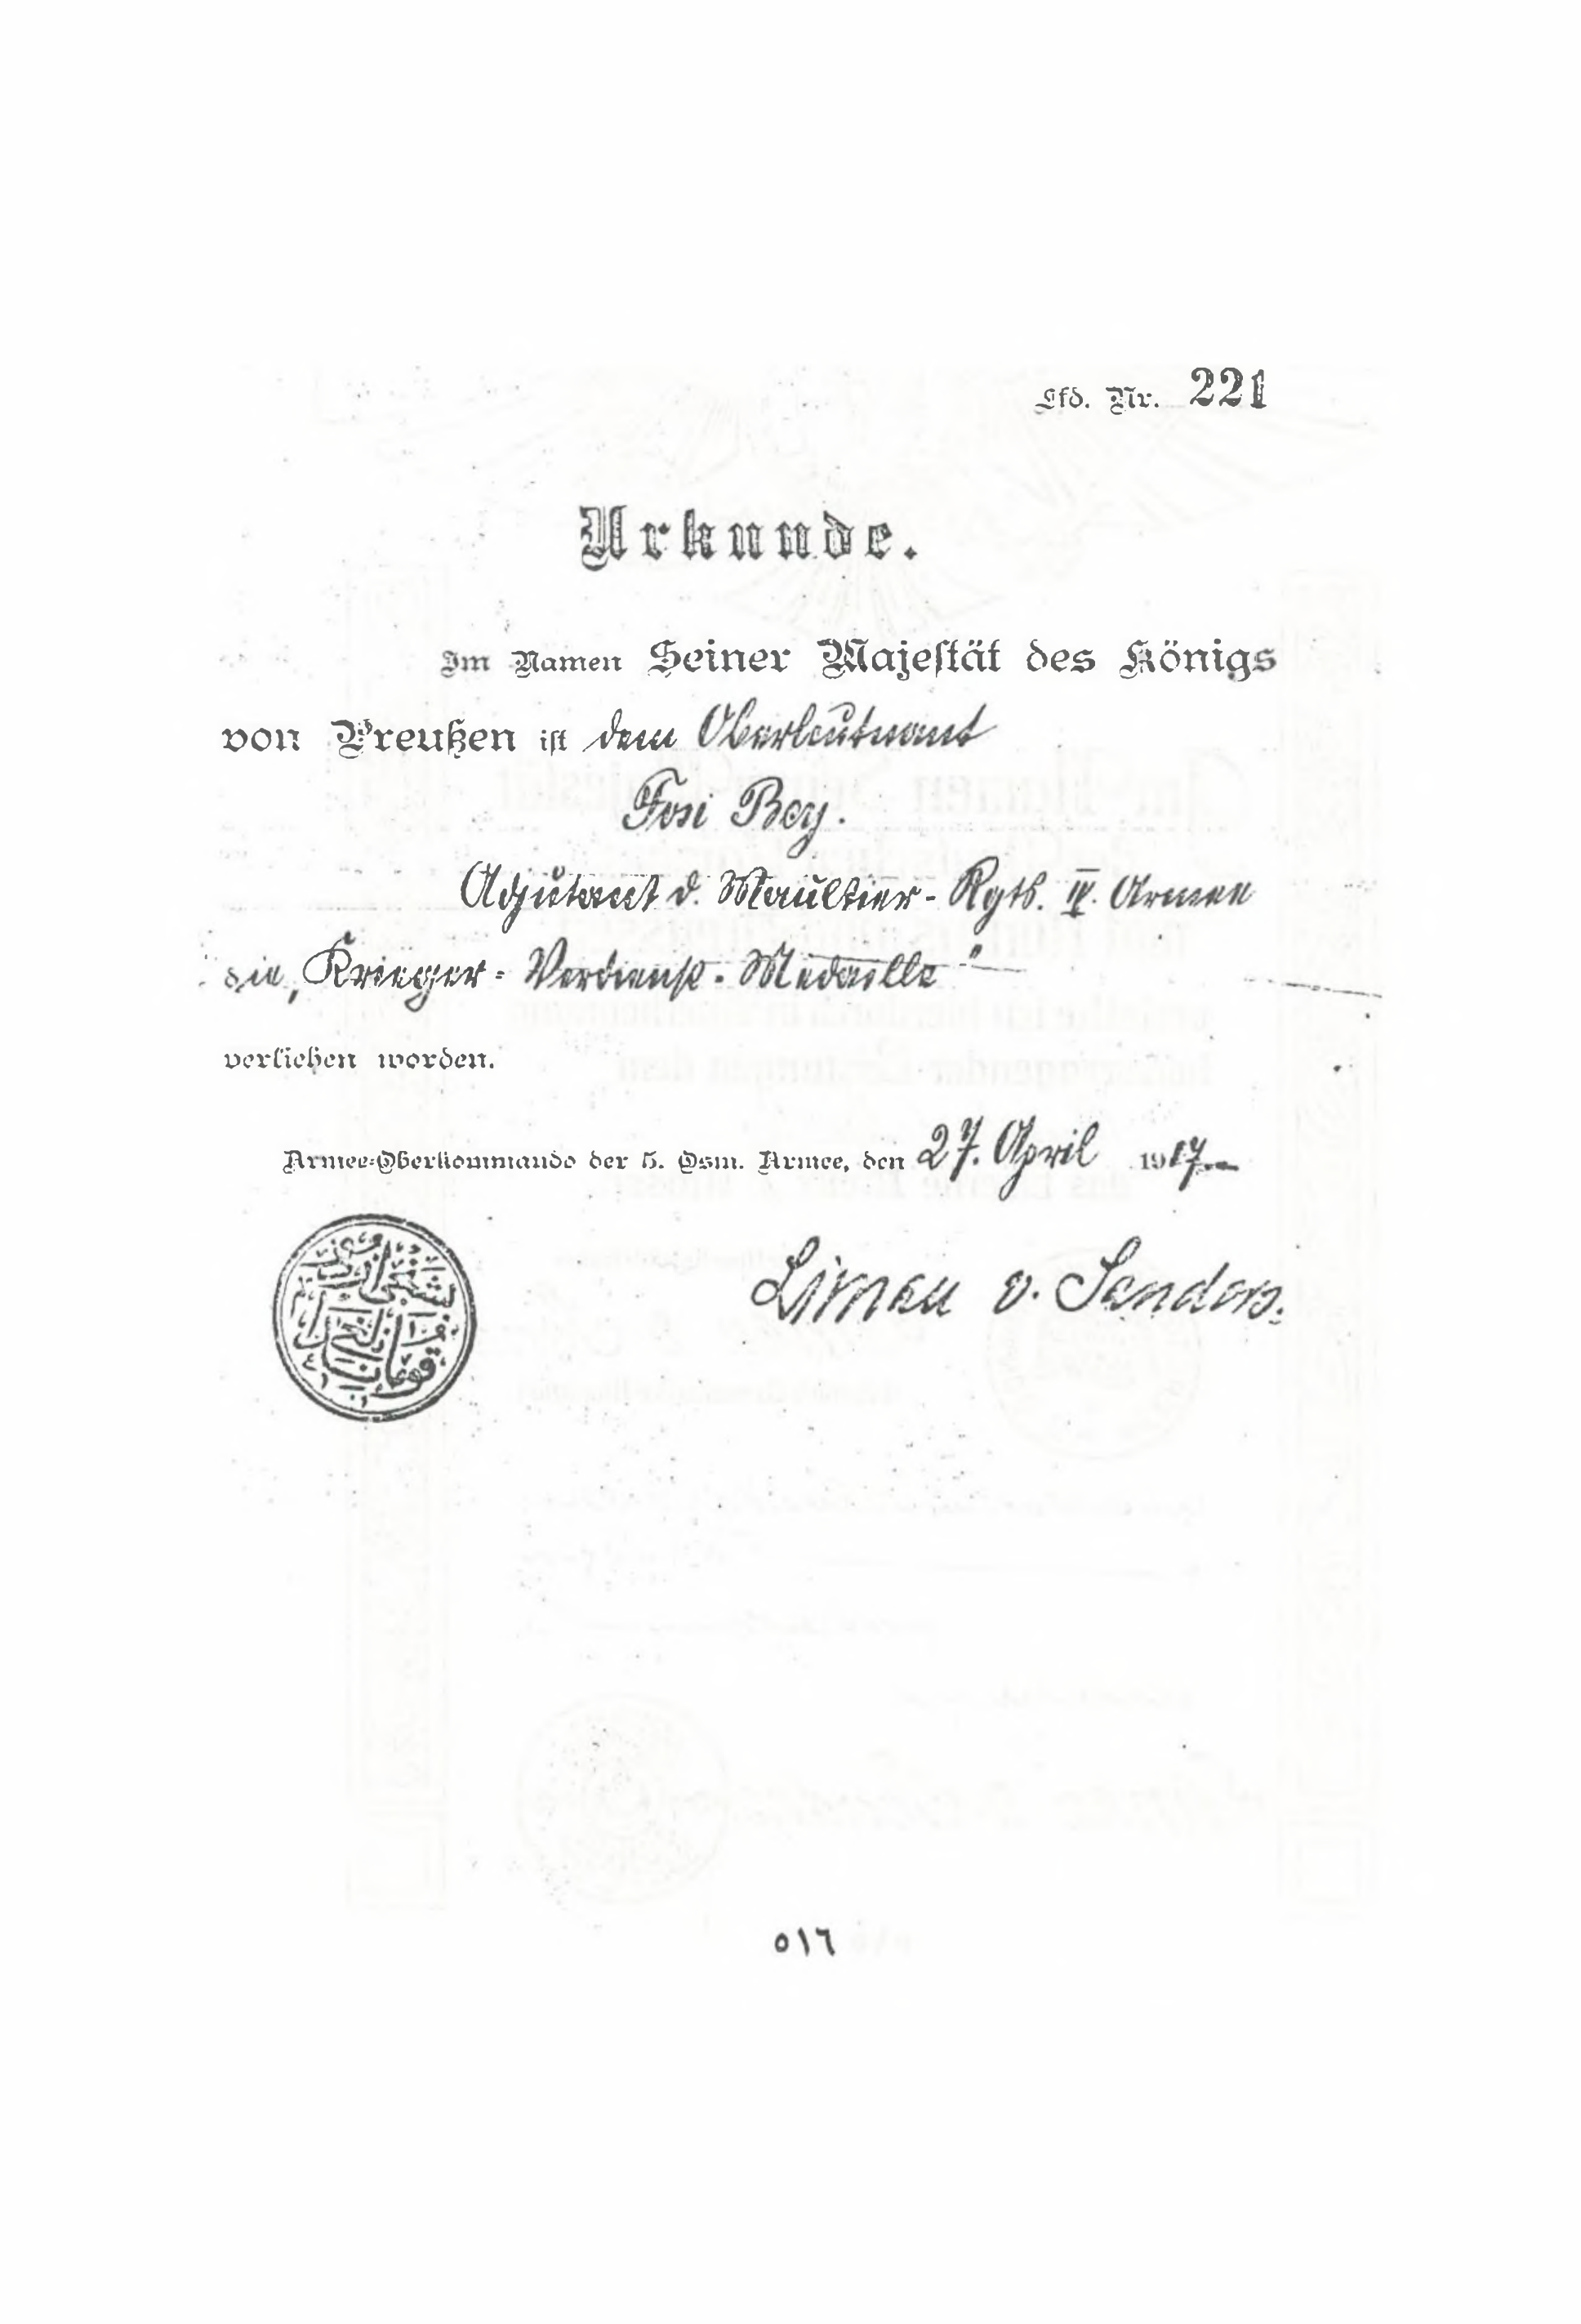 Lfd. Nr. 221
Urkunde.
Im Namen Seiner Majestät des Königs
von Preußen ist dem Oberleutnant
Fosi Bey.
Adjutant d. Maultier-Rgts. IV. Armee
die „Krieger-Verdienst-Medaille"
verliehen worden.
Armee-Oberkommando der 5. Osm. Armee, den 27. April 1917.
Liman v. Sanders.
٥١٦